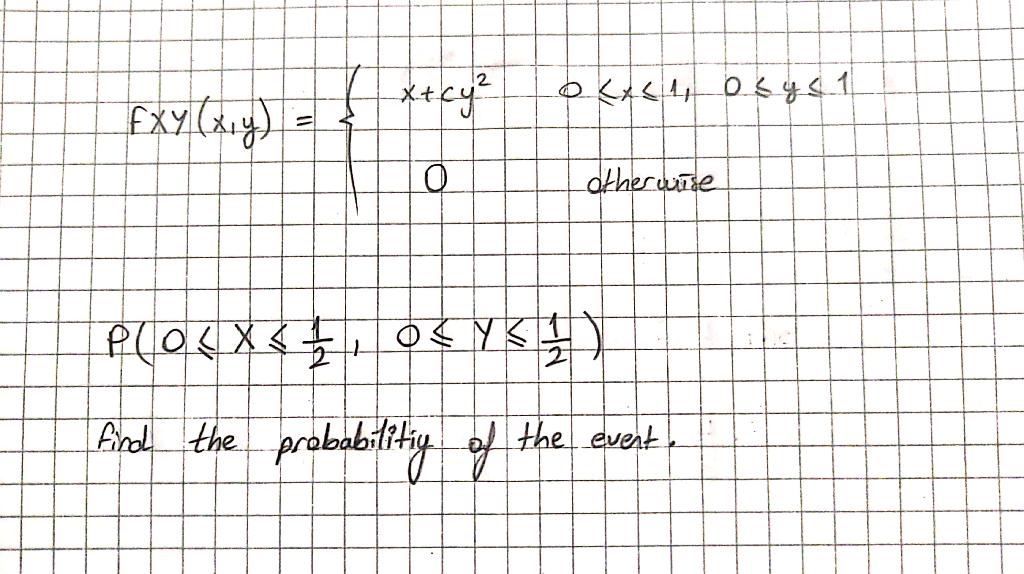 fXY(x,y) = { x+cy² 0≤x≤1, 0≤y≤1
0 otherwise
P(0≤X≤1/2, 0≤Y≤1/2)
find the probabilitiy of the event.